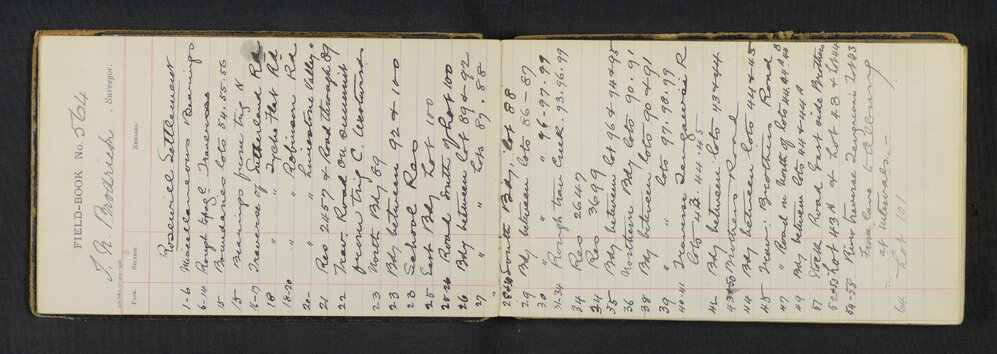 FIELD-BOOK No. 564
J. R. Brodrish, Surveyor.
PAGE. SECTION. REMARKS.
Rosewill Settlement
1-6 Miscellaneous Bearings
6-14 Rough Traverses
15 Boundaries lots 54.55.56
15- Bearings from trig N
16-17 Traverse of Sutherland Rd
18 " " Tycho Flat Rd
18-20 " " Robinson Rd
20- " " Limestone Valley "
21 Res 2457 & Road through 89
22 Trav. Road on summit
from trig C. westward
23 North Bdy 89
23 Bdy between 92 & 100
23 School Res
25 East Bdy Lot 100
25-26 Road South of Lot 100
26 Bdy between lot 89 & 92
27 " " lots 87.88
28 South Bdy lot 88
29 Bdy between lots 86-87
30 " " " 96.97.99
31-34 Rough trav Creek 93.96.99
34 Res 2647
34 Res 3699
35 Bdy between lot 96 & 94 & 95
36 Northern Bdy lots 90.91
38 Bdy between lots 90 & 91
39 " " lots 97.98.99
40-41 Traverse Tengawai R
Lots 43.44.45
42 Bdy between Lot 43 & 44
43 Brothers Road
44 Bdy between lots 44 & 45
45 Trav. Brothers Road
47 " Road on North of lots 44.44A.43
49 Bdy between lots 44 & 44A
51 Stock Road East side Brothers
52-53 Lot 43A & Lot 43 & lot 44
53-58 River traverse Tengawai Lot 43
from Cave to Albury
at intervals.—
64 Lot 101